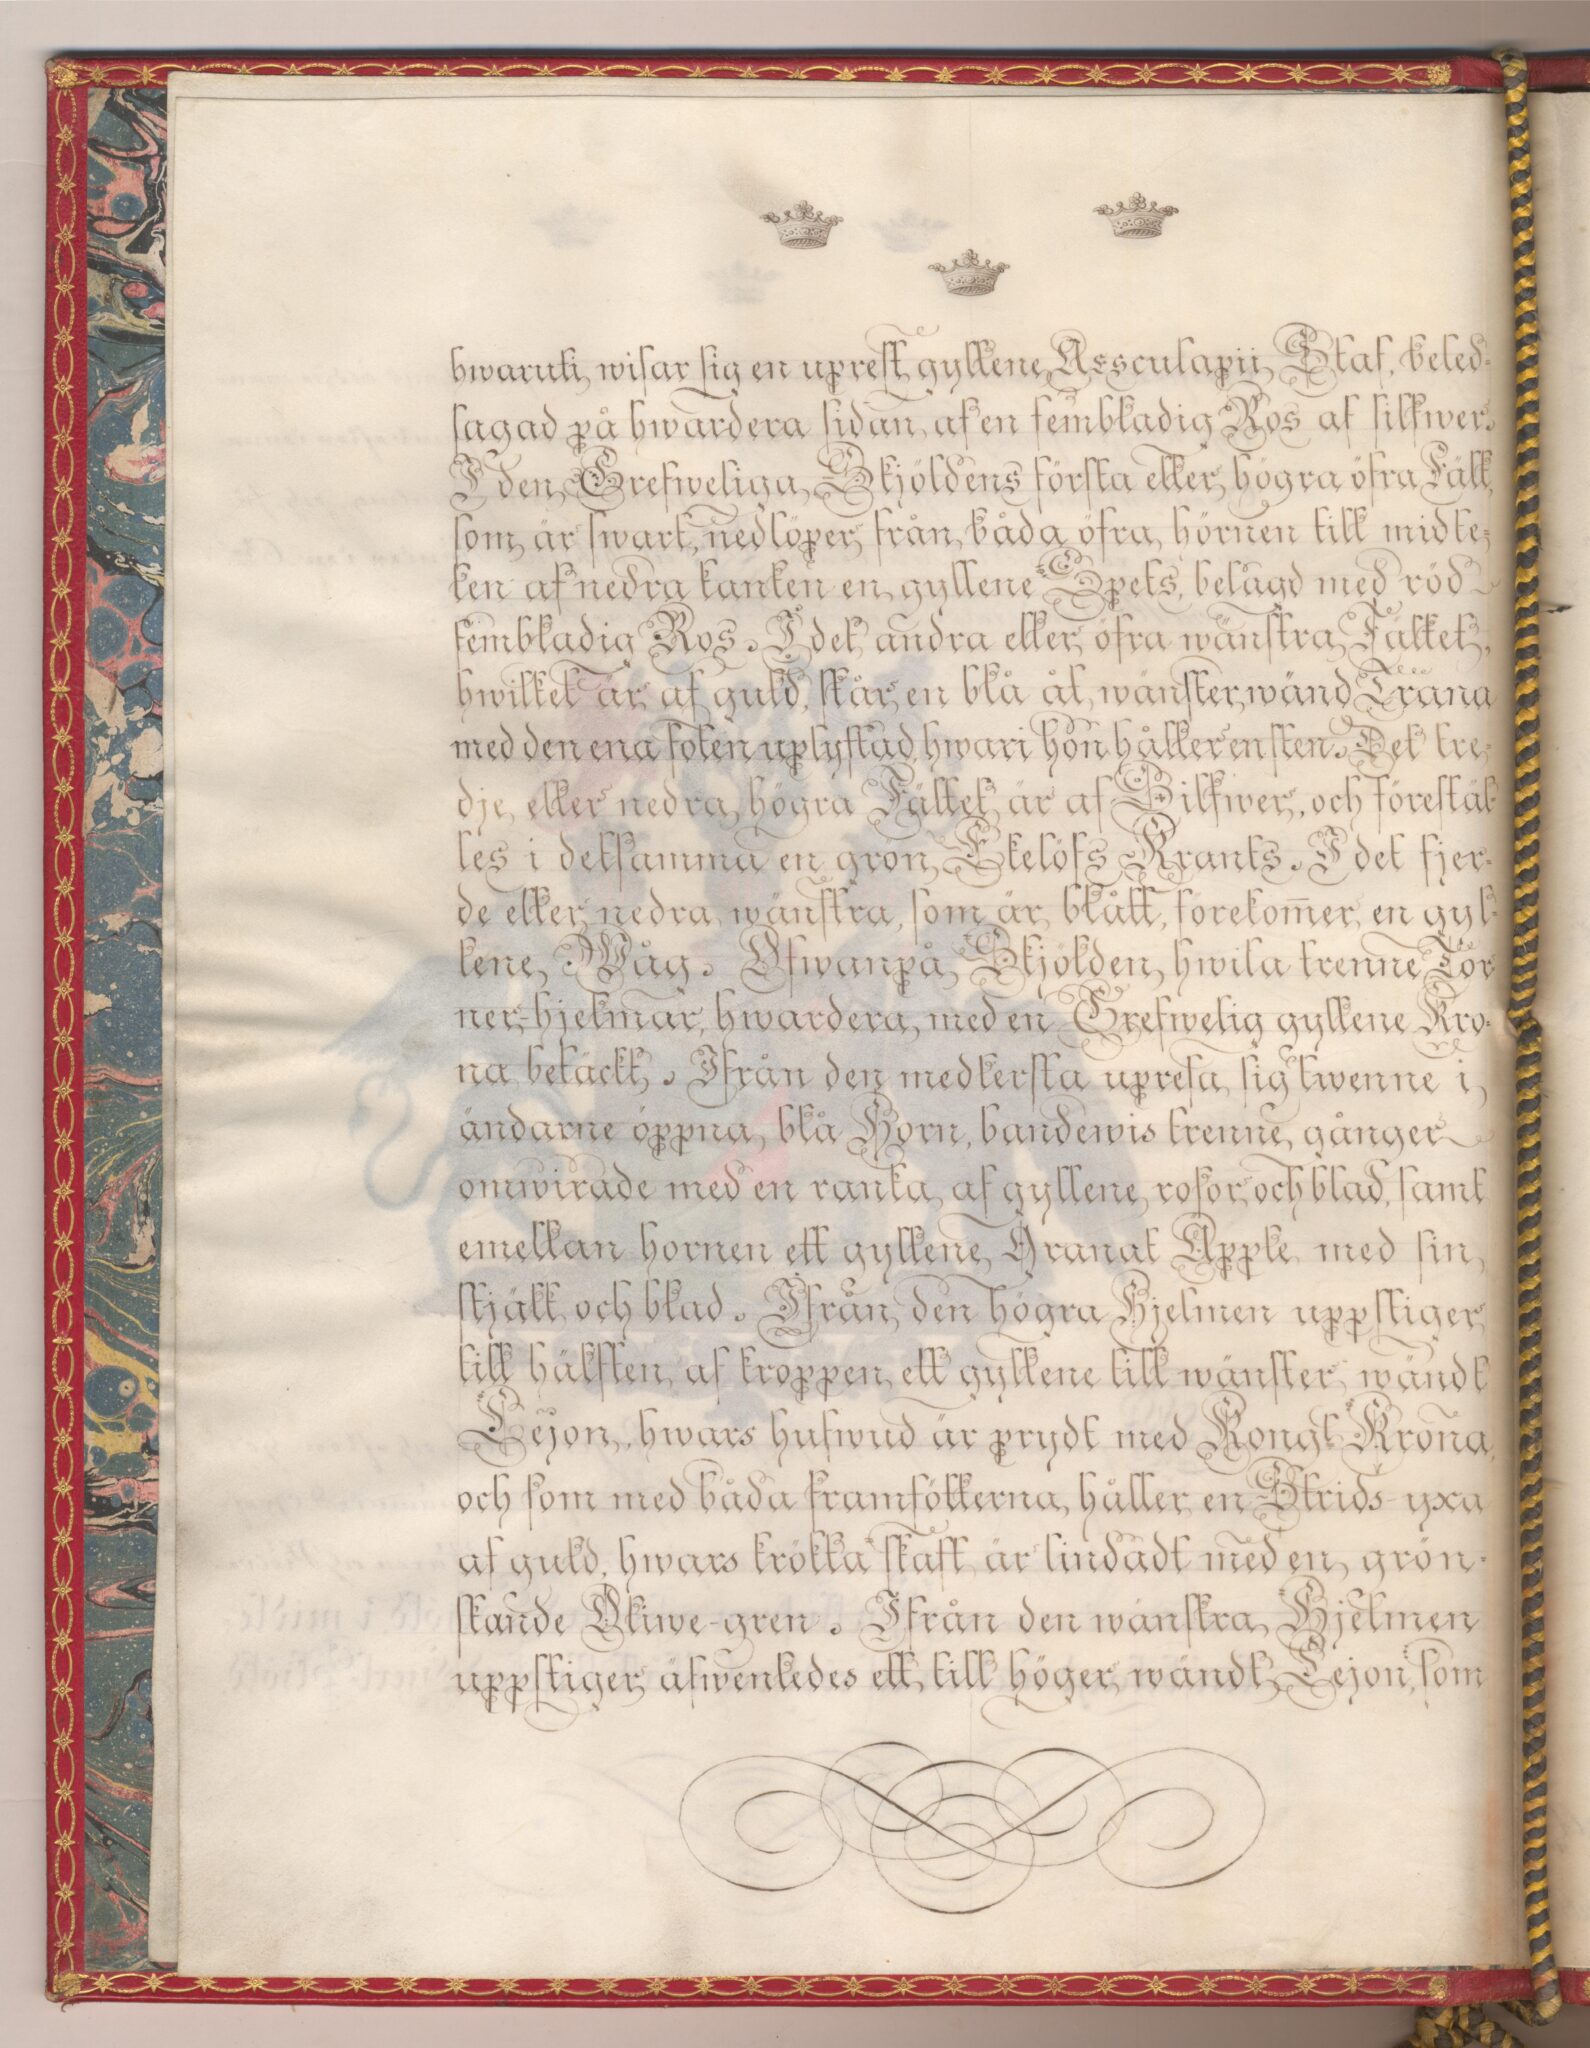 hwaruti wisar sig en uprest gyllene Aesculapii Staf, beled-
sagad på hwardera sidan af en fembladig Ros af silfwer.
I den Grefweliga Skjöldens första eller högra öfra Fält,
som är swart, nedlöper från båda öfra hörnen till midte-
len af nedra kanten en gyllene Spets, belagd med röd
fembladig Ros. I det andra eller öfra wänstra Fältet,
hwilket är af guld, står en blå åt wänster wänd Trana
med den ena foten uplyftad, hwari hon håller en sten. Det tre-
dje eller nedra högra Fältet är af Silfwer, och föreställ-
les i detsamma en grön Ekelöfs Krants. I det fjer-
de eller nedra wänstra, som är blått, förekom̄er en gyl-
lene Wåg. Ofwanpå Skjölden hwila trenne Tor-
ner-hjelmar, hwardera med en Grefwelig gyllene Kro-
na betäckt. Ifrån den medlersta upresa sig twenne i
ändarne öppna blå Horn, bandewis trenne gånger
omwirade med en ranka af gyllene rosor och blad, samt
emellan hornen ett gyllene Granat Äpple med sin
stjälk och blad. Ifrån den högra Hjelmen uppstiger
till hälften af kroppen ett gyllene till wänster wändt
Lejon, hwars hufwud är prydt med Kongl Krona,
och som med båda framfötterna håller en Strids-yxa
af guld, hwars krökta skaft är lindadt med en grön-
skande Oliwe-gren. Ifrån den wänstra Hjelmen
uppstiger äfwenledes ett till höger wändt Lejon, som